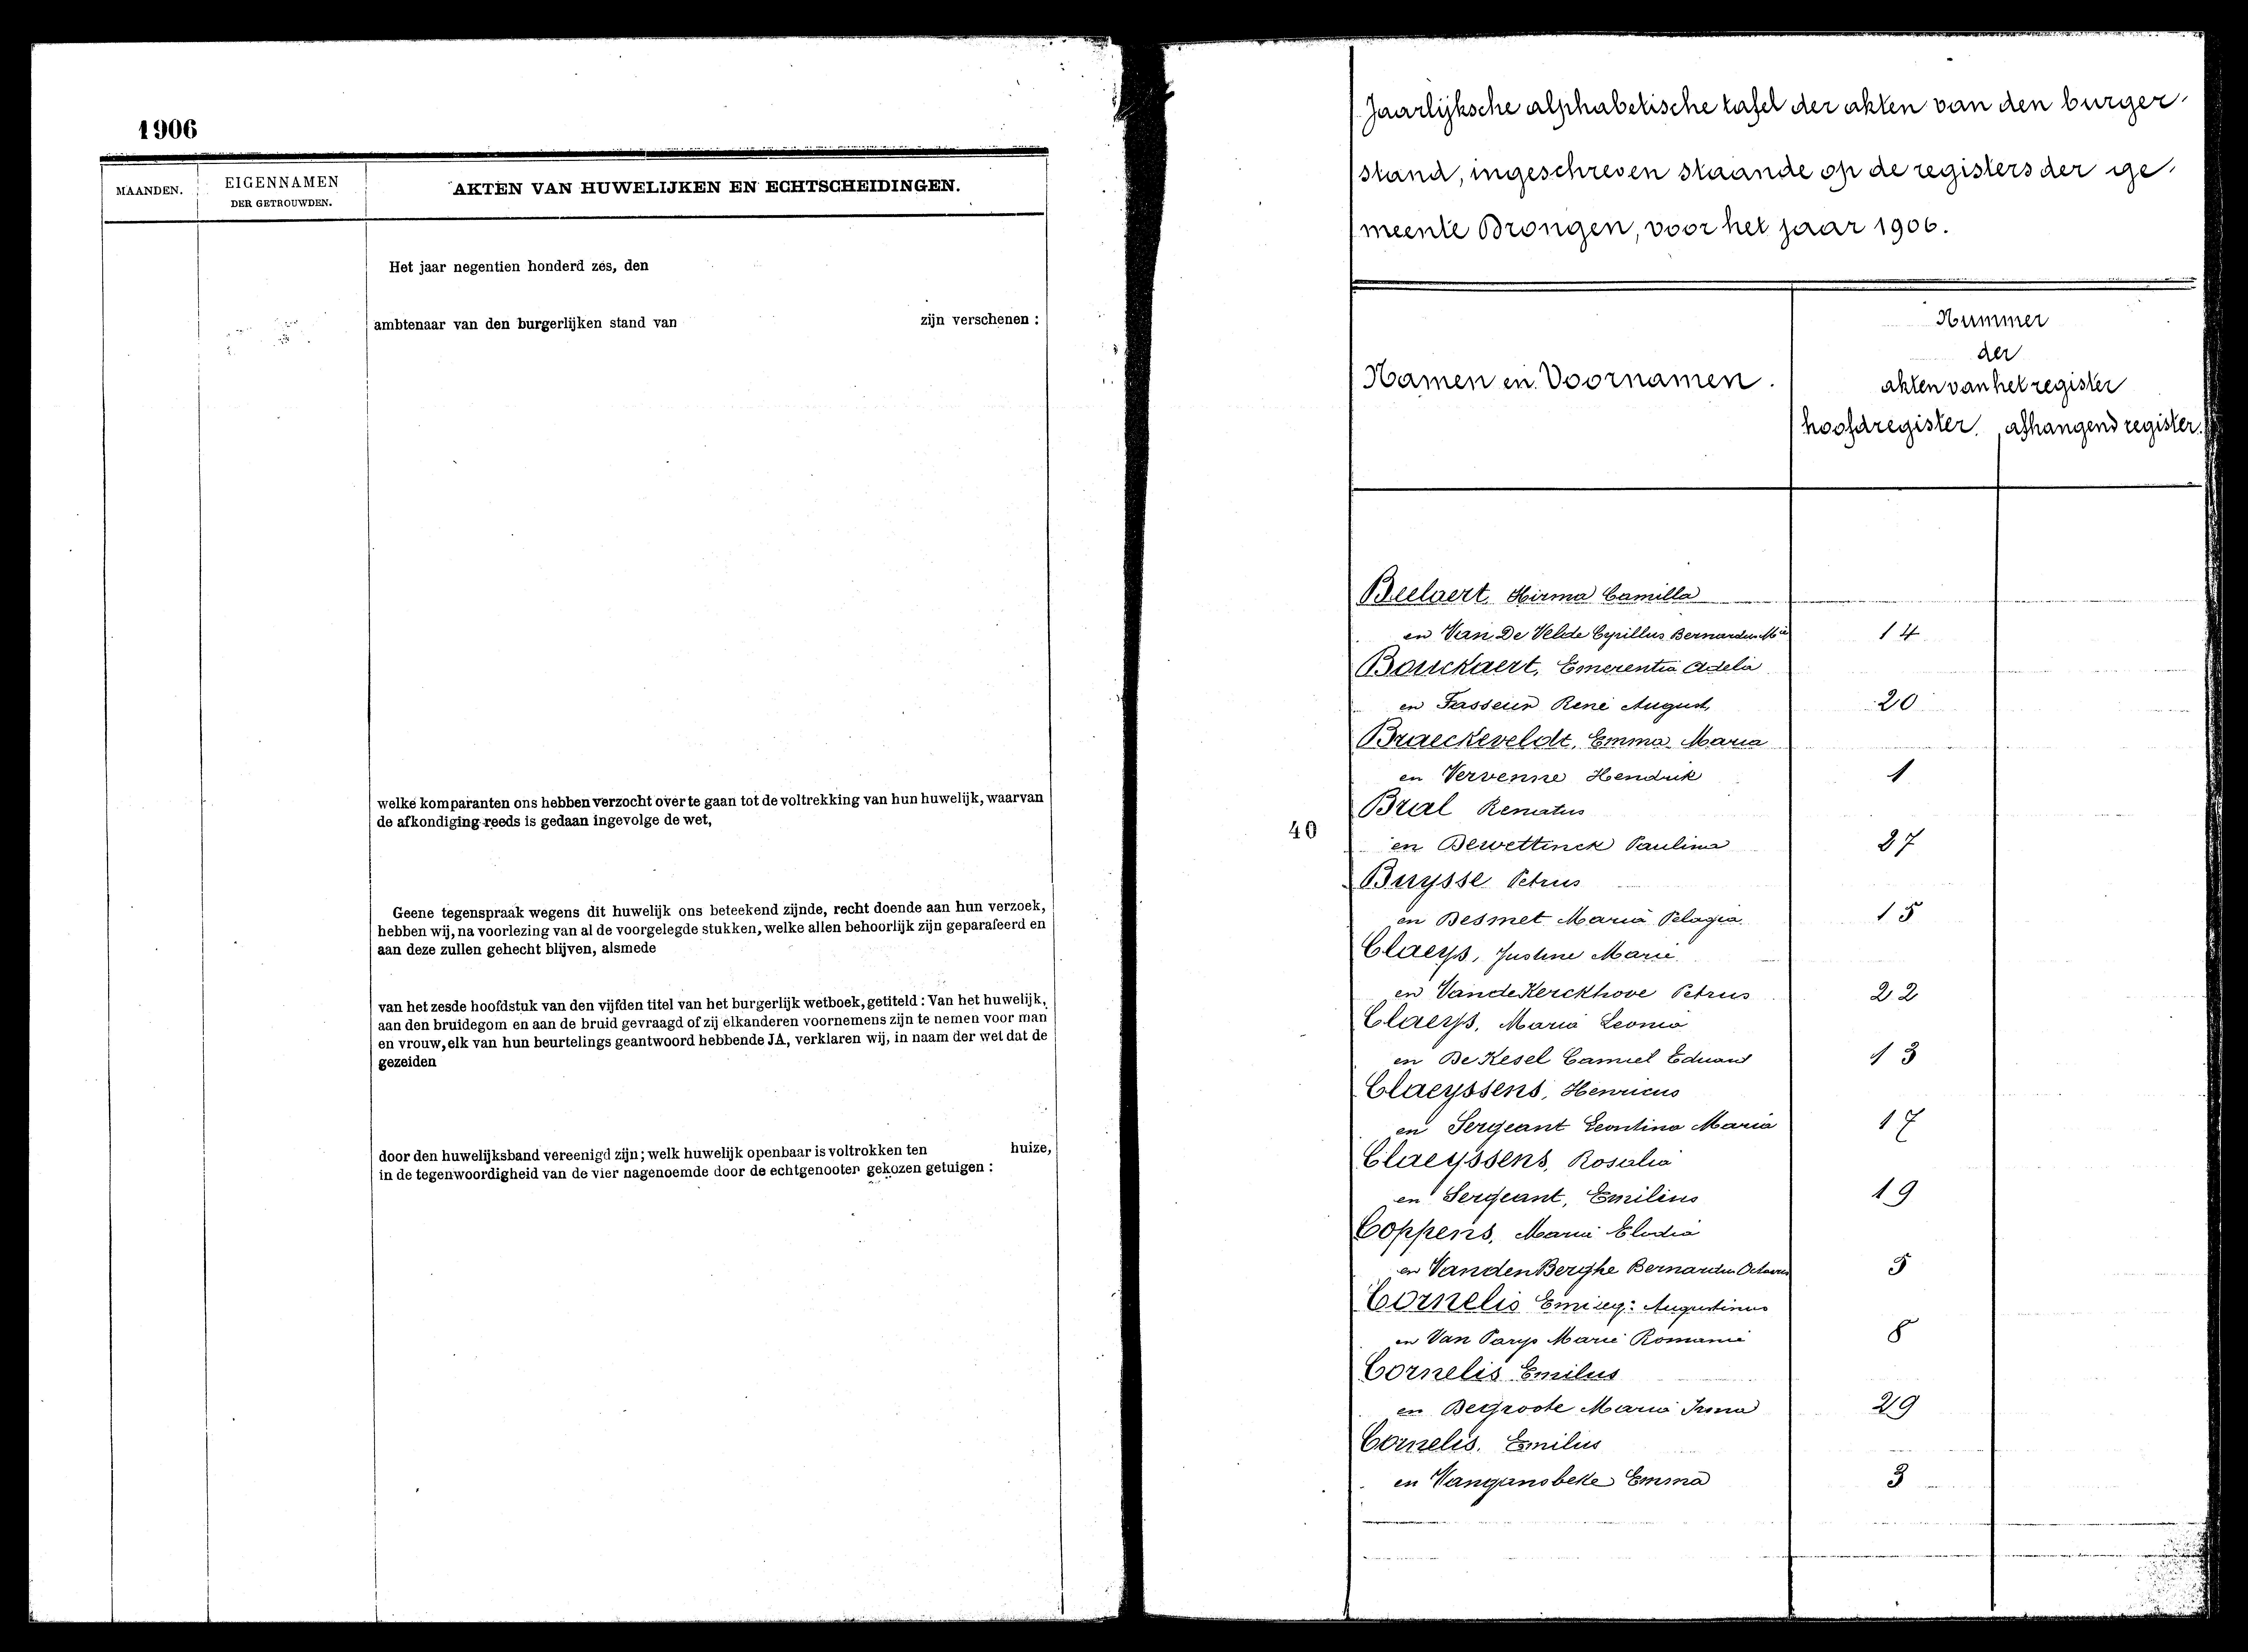 1906
MAANDEN.
EIGENNAMEN
DER GETROUWDEN.
AKTEN VAN HUWELIJKEN EN ECHTSCHEIDINGEN.
Het jaar negentien honderd zes, den
ambtenaar van den burgerlijken stand van zijn verschenen :
welke komparanten ons hebben verzocht over te gaan tot de voltrekking van hun huwelijk, waarvan
de afkondiging reeds is gedaan ingevolge de wet,
Geene tegenspraak wegens dit huwelijk ons beteekend zijnde, recht doende aan hun verzoek,
hebben wij, na voorlezing van al de voorgelegde stukken, welke allen behoorlijk zijn geparafeerd en
aan deze zullen gehecht blijven, alsmede
van het zesde hoofdstuk van den vijfden titel van het burgerlijk wetboek, getiteld : Van het huwelijk,
aan den bruidegom en aan de bruid gevraagd of zij elkanderen voornemens zijn te nemen voor man
en vrouw, elk van hun beurtelings geantwoord hebbende JA, verklaren wij, in naam der wet dat de
gezeiden
door den huwelijksband vereenigd zijn; welk huwelijk openbaar is voltrokken ten huize,
in de tegenwoordigheid van de vier nagenoemde door de echtgenooten gekozen getuigen :
Jaarlijksche alphabetische tafel der akten van den burger-
stand, ingeschreven staande op de registers der ge-
meente Drongen, voor het jaar 1906.
Namen en Voornamen.
Nummer
der
akten van het register
hoofdregister. afhangend register.
Beelaert, Hirma Camilla
en Van De Velde Cyrillus Bernardus 14
Bouckaert, Emerentia Adela
en Fasseur René August, 20
Braeckeveldt, Emma Maria
en Vervenne Hendrik 1
Bral Renatus
40
en Dewettinck Paulina 27
Buysse Petrus
en Desmet Maria Pelagia 15
Claeys, Justine Marie
en VandeKerckhove Petrus 22
Claeys, Maria Leonia
en De Kesel Camiel Eduard 13
Claeyssens, Henricus
en Sergeant Leontina Maria 17
Claeyssens, Rosalia
en Sergeant, Emilius 19
Coppens, Maria Elodia
en VandenBerghe Bernardus Octavus 5
Cornelis Augustinus
en Van Parys Marie Romanie 8
Cornelis Emilus
en Degroote Maria Irma 29
Cornelis, Emilius
en Vangansbeke Emma 3